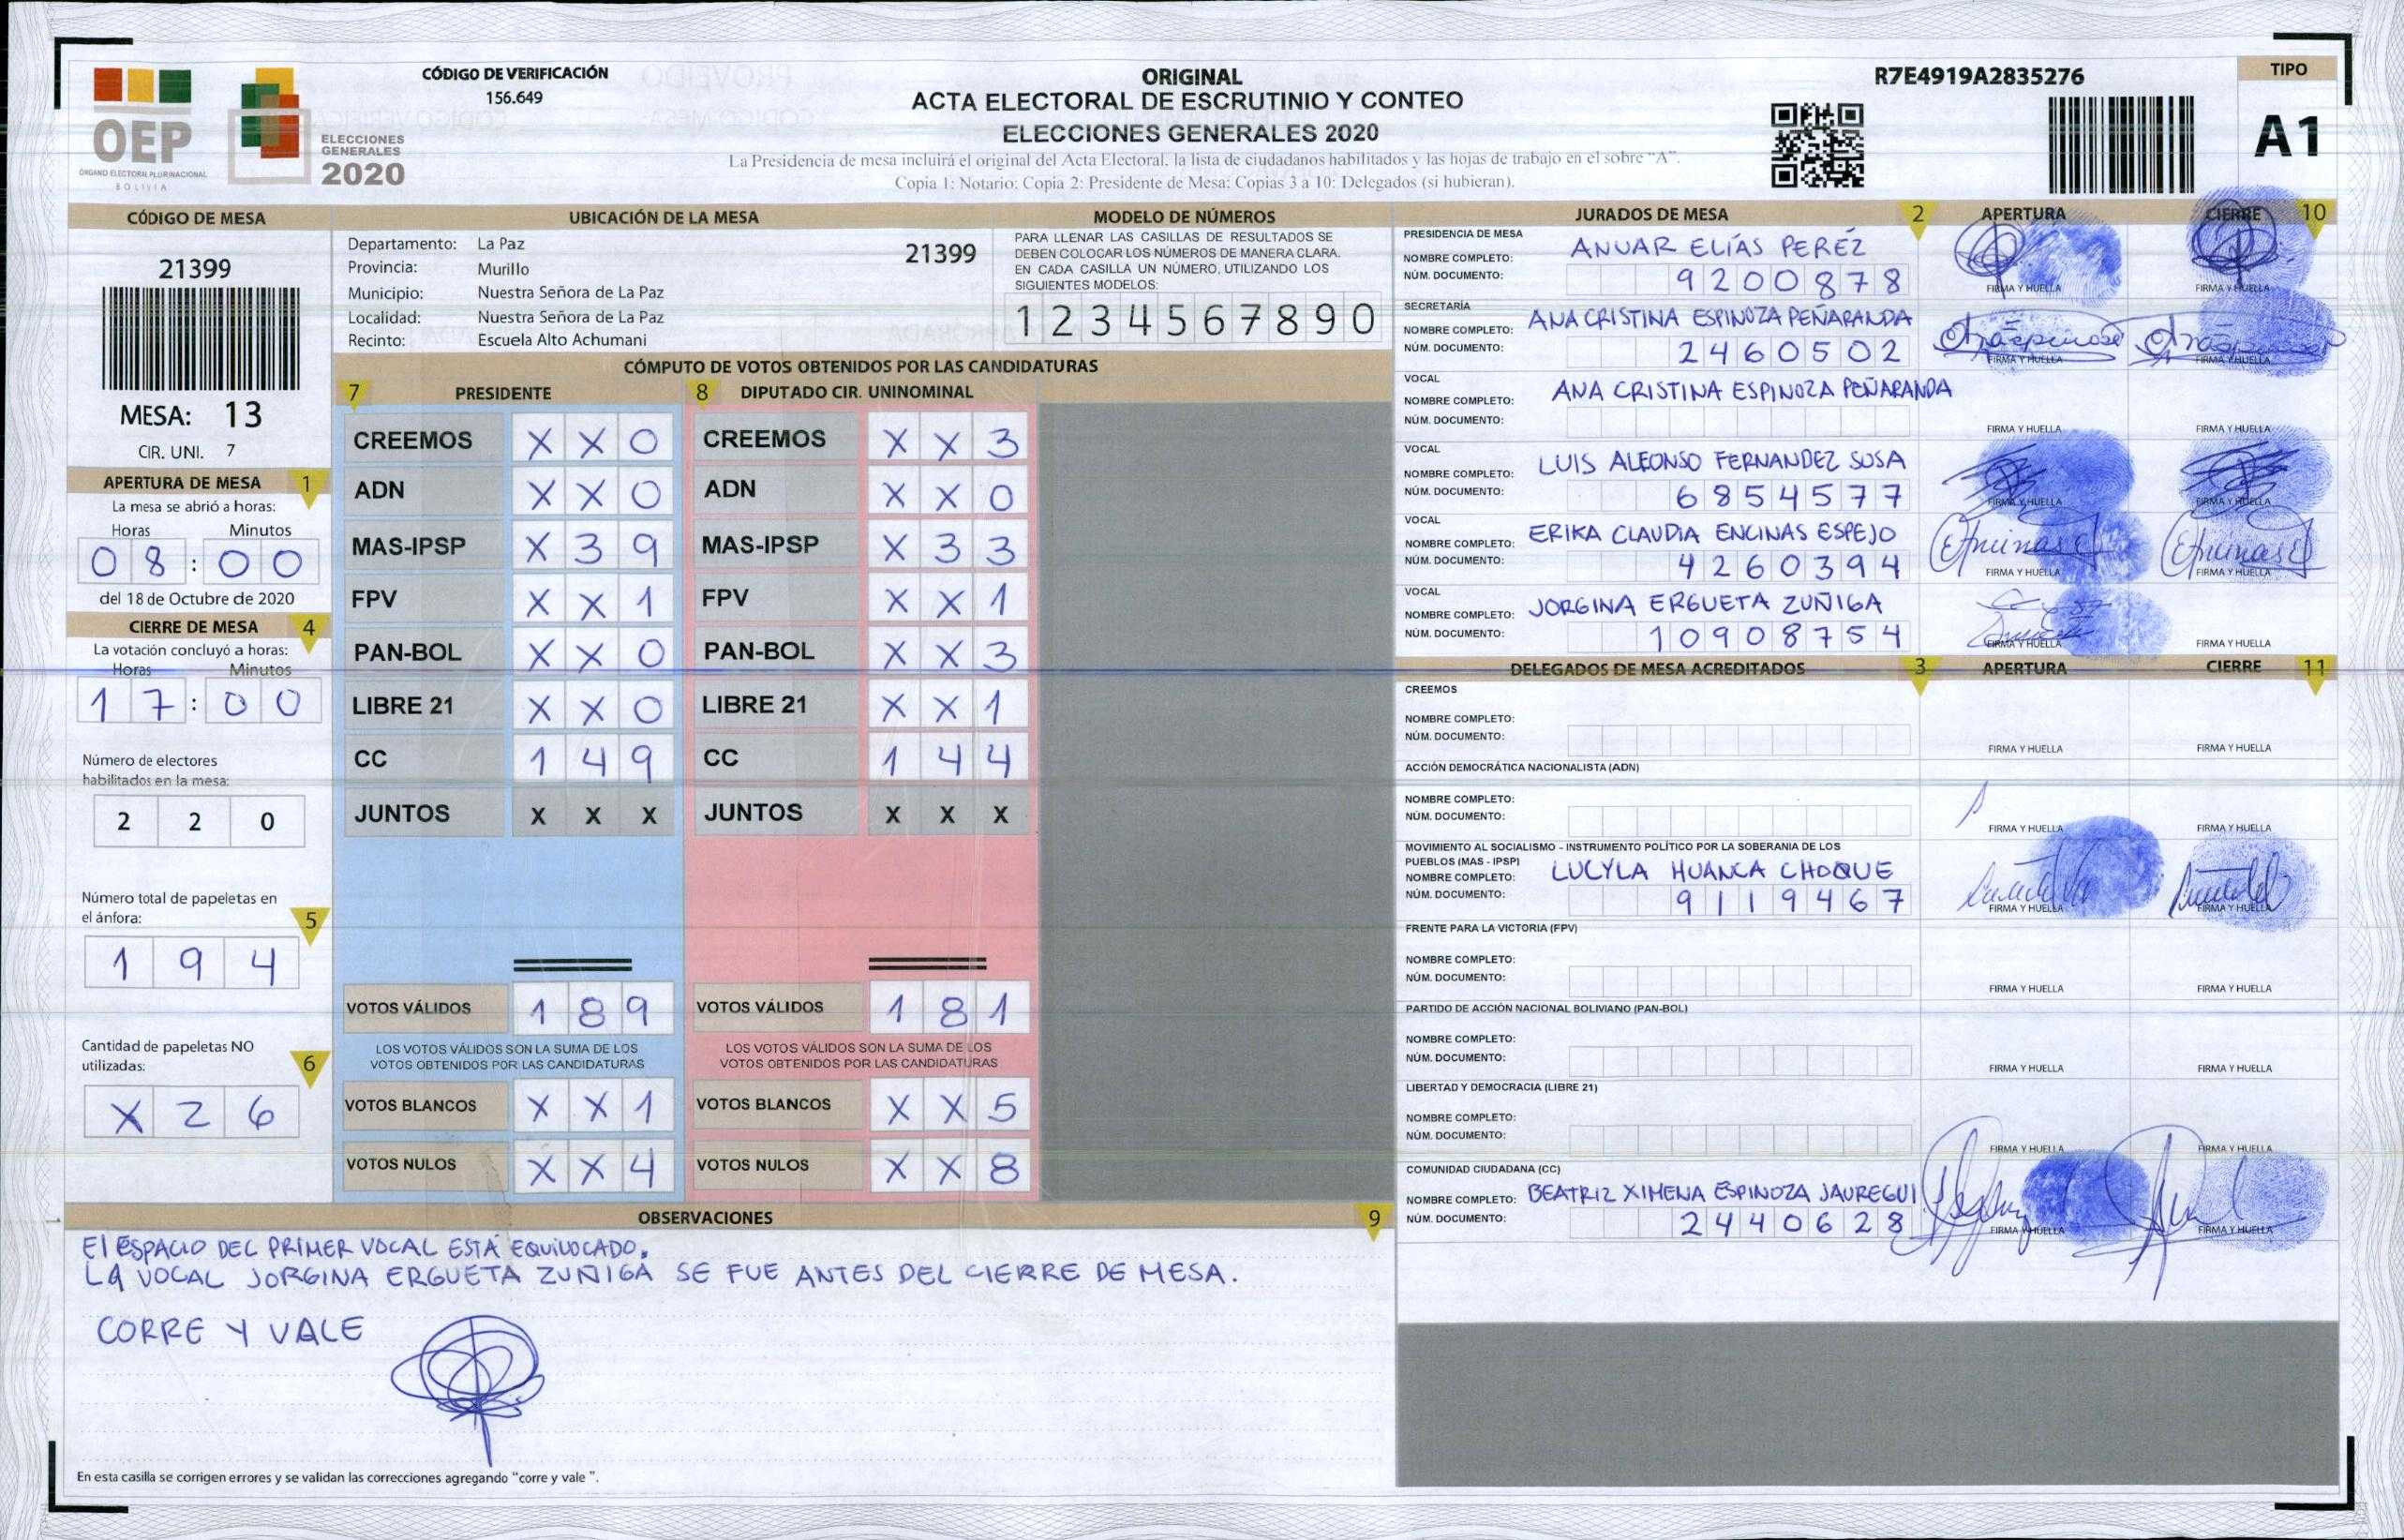 OEP
ÓRGANO ELECTORAL PLURINACIONAL
BOLIVIA
ELECCIONES
GENERALES
2020
CÓDIGO DE VERIFICACIÓN
156.649
ORIGINAL
ACTA ELECTORAL DE ESCRUTINIO Y CONTEO
ELECCIONES GENERALES 2020
La Presidencia de mesa incluirá el original del Acta Electoral, la lista de ciudadanos habilitados y las hojas de trabajo en el sobre "A".
Copia 1: Notario; Copia 2: Presidente de Mesa; Copias 3 a 10: Delegados (si hubieran).
R7E4919A2835276
TIPO
A1
CÓDIGO DE MESA
21399
MESA: 13
CIR. UNI. 7
APERTURA DE MESA 1
La mesa se abrió a horas:
Horas Minutos
08:00
del 18 de Octubre de 2020
CIERRE DE MESA 4
La votación concluyó a horas:
Horas Minutos
17:00
Número de electores
habilitados en la mesa:
2 2 0
Número total de papeletas en
el ánfora: 5
1 9 4
Cantidad de papeletas NO
utilizadas: 6
X 2 6
UBICACIÓN DE LA MESA
Departamento: La Paz 21399
Provincia: Murillo
Municipio: Nuestra Señora de La Paz
Localidad: Nuestra Señora de La Paz
Recinto: Escuela Alto Achumani
MODELO DE NÚMEROS
PARA LLENAR LAS CASILLAS DE RESULTADOS SE
DEBEN COLOCAR LOS NÚMEROS DE MANERA CLARA.
EN CADA CASILLA UN NÚMERO, UTILIZANDO LOS
SIGUIENTES MODELOS:
1 2 3 4 5 6 7 8 9 0
CÓMPUTO DE VOTOS OBTENIDOS POR LAS CANDIDATURAS
7 PRESIDENTE 8 DIPUTADO CIR. UNINOMINAL
CREEMOS X X 0 CREEMOS X X 3
ADN X X 0 ADN X X 0
MAS-IPSP X 3 9 MAS-IPSP X 3 3
FPV X X 1 FPV X X 1
PAN-BOL X X 0 PAN-BOL X X 3
LIBRE 21 X X 0 LIBRE 21 X X 1
CC 1 4 9 CC 1 4 4
JUNTOS X X X JUNTOS X X X
VOTOS VÁLIDOS 1 8 9 VOTOS VÁLIDOS 1 8 1
LOS VOTOS VÁLIDOS SON LA SUMA DE LOS LOS VOTOS VÁLIDOS SON LA SUMA DE LOS
VOTOS OBTENIDOS POR LAS CANDIDATURAS VOTOS OBTENIDOS POR LAS CANDIDATURAS
VOTOS BLANCOS X X 1 VOTOS BLANCOS X X 5
VOTOS NULOS X X 4 VOTOS NULOS X X 8
OBSERVACIONES 9
El ESPACIO DEL PRIMER VOCAL ESTÁ EQUIVOCADO.
LA VOCAL JORGINA ERGUETA ZUÑIGA SE FUE ANTES DEL CIERRE DE MESA.
CORRE Y VALE
En esta casilla se corrigen errores y se validan las correcciones agregando "corre y vale ".
JURADOS DE MESA 2 APERTURA CIERRE 10
PRESIDENCIA DE MESA
NOMBRE COMPLETO: ANUAR ELÍAS PERÉZ
NÚM. DOCUMENTO: 9200878
FIRMA Y HUELLA FIRMA Y HUELLA
SECRETARÍA
NOMBRE COMPLETO: ANA CRISTINA ESPINOZA PEÑARANDA
NÚM. DOCUMENTO: 2460502
FIRMA Y HUELLA FIRMA Y HUELLA
VOCAL
NOMBRE COMPLETO: ANA CRISTINA ESPINOZA PEÑARANDA
NÚM. DOCUMENTO:
FIRMA Y HUELLA FIRMA Y HUELLA
VOCAL
NOMBRE COMPLETO: LUIS ALFONSO FERNANDEZ SUSA
NÚM. DOCUMENTO: 6854577
FIRMA Y HUELLA FIRMA Y HUELLA
VOCAL
NOMBRE COMPLETO: ERIKA CLAUDIA ENCINAS ESPEJO
NÚM. DOCUMENTO: 4260394
FIRMA Y HUELLA FIRMA Y HUELLA
VOCAL
NOMBRE COMPLETO: JORGINA ERGUETA ZUÑIGA
NÚM. DOCUMENTO: 10908754
FIRMA Y HUELLA FIRMA Y HUELLA
DELEGADOS DE MESA ACREDITADOS 3 APERTURA CIERRE 11
CREEMOS
NOMBRE COMPLETO:
NÚM. DOCUMENTO:
FIRMA Y HUELLA FIRMA Y HUELLA
ACCIÓN DEMOCRÁTICA NACIONALISTA (ADN)
NOMBRE COMPLETO:
NÚM. DOCUMENTO:
FIRMA Y HUELLA FIRMA Y HUELLA
MOVIMIENTO AL SOCIALISMO - INSTRUMENTO POLÍTICO POR LA SOBERANIA DE LOS
PUEBLOS (MAS - IPSP)
NOMBRE COMPLETO: LUCYLA HUANCA CHOQUE
NÚM. DOCUMENTO: 9119467
FIRMA Y HUELLA FIRMA Y HUELLA
FRENTE PARA LA VICTORIA (FPV)
NOMBRE COMPLETO:
NÚM. DOCUMENTO:
FIRMA Y HUELLA FIRMA Y HUELLA
PARTIDO DE ACCIÓN NACIONAL BOLIVIANO (PAN-BOL)
NOMBRE COMPLETO:
NÚM. DOCUMENTO:
FIRMA Y HUELLA FIRMA Y HUELLA
LIBERTAD Y DEMOCRACIA (LIBRE 21)
NOMBRE COMPLETO:
NÚM. DOCUMENTO:
FIRMA Y HUELLA FIRMA Y HUELLA
COMUNIDAD CIUDADANA (CC)
NOMBRE COMPLETO: BEATRIZ XIMENA ESPINOZA JAUREGUI
NÚM. DOCUMENTO: 2440628
FIRMA Y HUELLA FIRMA Y HUELLA